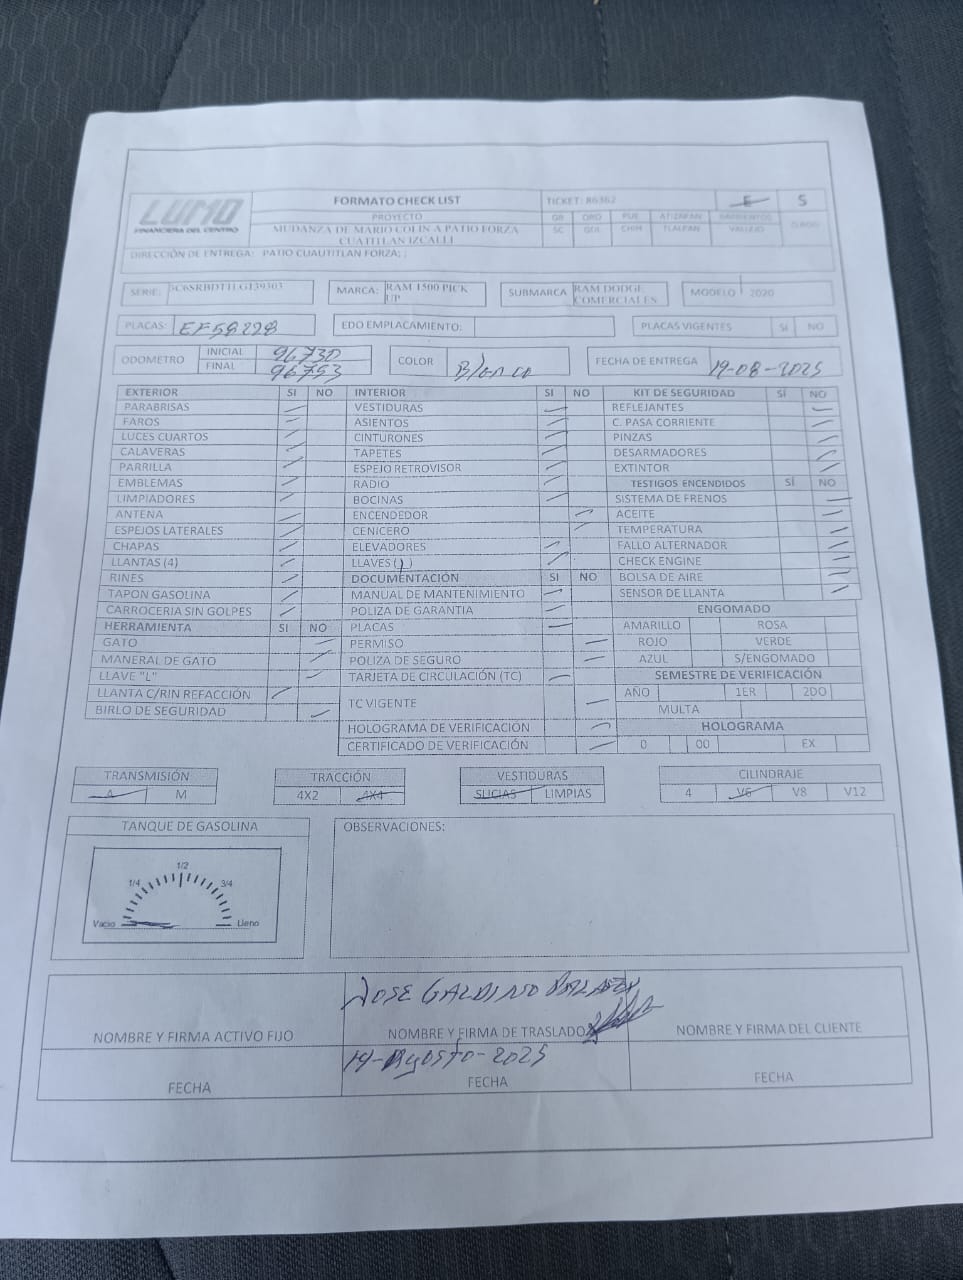 LUMO
FINANCIERA DEL CENTRO
FORMATO CHECK LIST
TICKET: 86362
E S
PROYECTO
MUDANZA DE MARIO COLIN A PATIO FORZA
CUATITLAN IZCALLI
GB QRO PUE ATIZAPAN
SC GDL CHIH TLALPAN VALLEJO
DIRECCIÓN DE ENTREGA: PATIO CUAUTITLAN FORZA; ;
SERIE:
MARCA: RAM 1500 PICK UP
SUBMARCA RAM DODGE COMERCIALES
MODELO 2020
PLACAS: EF58228
EDO EMPLACAMIENTO:
PLACAS VIGENTES SI NO
ODOMETRO INICIAL 96730
FINAL 96753
COLOR Blanco
FECHA DE ENTREGA 19-08-2025
EXTERIOR SI NO INTERIOR SI NO KIT DE SEGURIDAD SÍ NO
PARABRISAS VESTIDURAS REFLEJANTES
FAROS ASIENTOS C. PASA CORRIENTE
LUCES CUARTOS CINTURONES PINZAS
CALAVERAS TAPETES DESARMADORES
PARRILLA ESPEJO RETROVISOR EXTINTOR
EMBLEMAS RADIO TESTIGOS ENCENDIDOS SÍ NO
LIMPIADORES BOCINAS SISTEMA DE FRENOS
ANTENA ENCENDEDOR ACEITE
ESPEJOS LATERALES CENICERO TEMPERATURA
CHAPAS ELEVADORES FALLO ALTERNADOR
LLANTAS (4) LLAVES (1) CHECK ENGINE
RINES DOCUMENTACIÓN SI NO BOLSA DE AIRE
TAPON GASOLINA MANUAL DE MANTENIMIENTO SENSOR DE LLANTA
CARROCERIA SIN GOLPES POLIZA DE GARANTIA ENGOMADO
HERRAMIENTA SI NO PLACAS AMARILLO ROSA
GATO PERMISO ROJO VERDE
MANERAL DE GATO POLIZA DE SEGURO AZUL S/ENGOMADO
LLAVE "L" TARJETA DE CIRCULACIÓN (TC) SEMESTRE DE VERIFICACIÓN
LLANTA C/RIN REFACCIÓN TC VIGENTE AÑO 1ER 2DO
BIRLO DE SEGURIDAD MULTA
HOLOGRAMA DE VERIFICACION HOLOGRAMA
CERTIFICADO DE VERIFICACIÓN 0 00 EX
TRANSMISIÓN TRACCIÓN VESTIDURAS CILINDRAJE
A M 4X2 4X4 SUCIAS LIMPIAS 4 V6 V8 V12
TANQUE DE GASOLINA
OBSERVACIONES:
1/2
1/4 3/4
Vacio Lleno
JOSE GALDINO
NOMBRE Y FIRMA ACTIVO FIJO NOMBRE Y FIRMA DE TRASLADO NOMBRE Y FIRMA DEL CLIENTE
19-Agosto-2025
FECHA FECHA FECHA